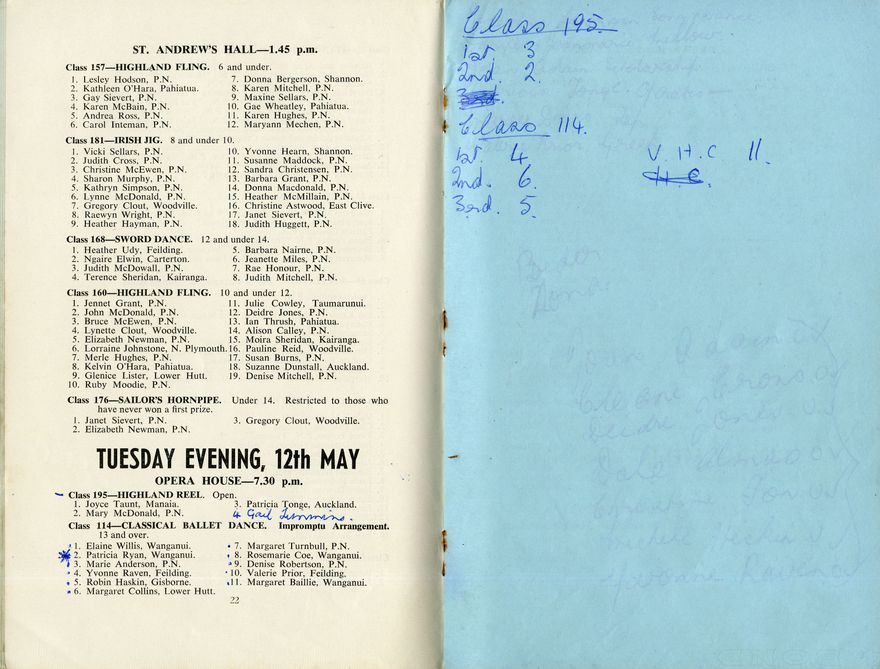 ST. ANDREW'S HALL—1.45 p.m.
Class 157—HIGHLAND FLING. 6 and under.
1. Lesley Hodson, P.N.
2. Kathleen O'Hara, Pahiatua.
3. Gay Sievert, P.N.
4. Karen McBain, P.N.
5. Andrea Ross, P.N.
6. Carol Inteman, P.N.
7. Donna Bergerson, Shannon.
8. Karen Mitchell, P.N.
9. Maxine Sellars, P.N.
10. Gae Wheatley, Pahiatua.
11. Karen Hughes, P.N.
12. Maryann Mechen, P.N.
Class 181—IRISH JIG. 8 and under 10.
1. Vicki Sellars, P.N.
2. Judith Cross, P.N.
3. Christine McEwen, P.N.
4. Sharon Murphy, P.N.
5. Kathryn Simpson, P.N.
6. Lynne McDonald, P.N.
7. Gregory Clout, Woodville.
8. Raewyn Wright, P.N.
9. Heather Hayman, P.N.
10. Yvonne Hearn, Shannon.
11. Susanne Maddock, P.N.
12. Sandra Christensen, P.N.
13. Barbara Grant, P.N.
14. Donna Macdonald, P.N.
15. Heather McMillain, P.N.
16. Christine Astwood, East Clive.
17. Janet Sievert, P.N.
18. Judith Huggett, P.N.
Class 168—SWORD DANCE. 12 and under 14.
1. Heather Udy, Feilding.
2. Ngaire Elwin, Carterton.
3. Judith McDowall, P.N.
4. Terence Sheridan, Kairanga.
5. Barbara Nairne, P.N.
6. Jeanette Miles, P.N.
7. Rae Honour, P.N.
8. Judith Mitchell, P.N.
Class 160—HIGHLAND FLING. 10 and under 12.
1. Jennet Grant, P.N.
2. John McDonald, P.N.
3. Bruce McEwen, P.N.
4. Lynette Clout, Woodville.
5. Elizabeth Newman, P.N.
6. Lorraine Johnstone, N. Plymouth.
7. Merle Hughes, P.N.
8. Kelvin O'Hara, Pahiatua.
9. Glenice Lister, Lower Hutt.
10. Ruby Moodie, P.N.
11. Julie Cowley, Taumarunui.
12. Deidre Jones, P.N.
13. Ian Thrush, Pahiatua.
14. Alison Calley, P.N.
15. Moira Sheridan, Kairanga.
16. Pauline Reid, Woodville.
17. Susan Burns, P.N.
18. Suzanne Dunstall, Auckland.
19. Denise Mitchell, P.N.
Class 176—SAILOR'S HORNPIPE. Under 14. Restricted to those who
have never won a first prize.
1. Janet Sievert, P.N.
2. Elizabeth Newman, P.N.
3. Gregory Clout, Woodville.
TUESDAY EVENING, 12th MAY
OPERA HOUSE—7.30 p.m.
Class 195—HIGHLAND REEL. Open.
1. Joyce Taunt, Manaia.
2. Mary McDonald, P.N.
3. Patricia Tonge, Auckland.
4 Gail
Class 114—CLASSICAL BALLET DANCE. Impromptu Arrangement.
13 and over.
1. Elaine Willis, Wanganui.
2. Patricia Ryan, Wanganui.
3. Marie Anderson, P.N.
4. Yvonne Raven, Feilding.
5. Robin Haskin, Gisborne.
6. Margaret Collins, Lower Hutt.
7. Margaret Turnbull, P.N.
8. Rosemarie Coe, Wanganui.
9. Denise Robertson, P.N.
10. Valerie Prior, Feilding.
11. Margaret Baillie, Wanganui.
22
Class 195.
1st 3
2nd. 2.
3rd.
Class 114.
1st. 4 V. H. C 11.
2nd. 6. H.C.
3rd. 5.